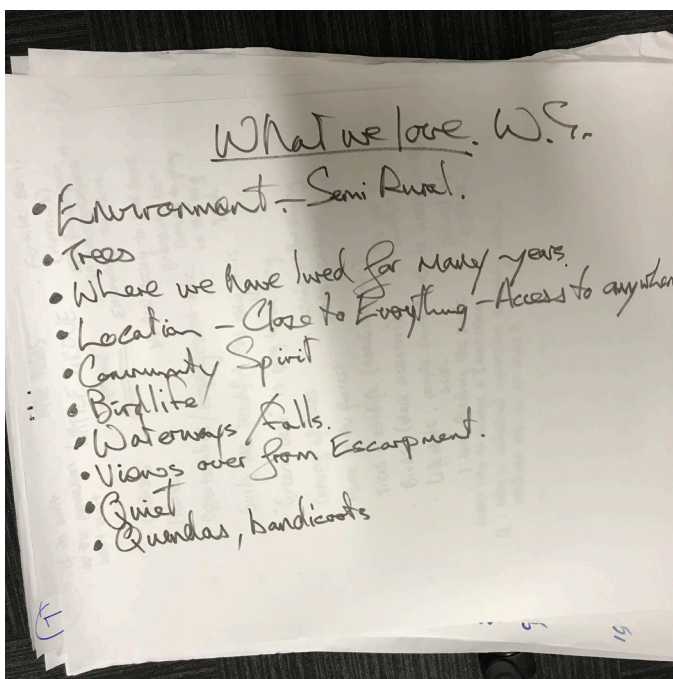 What we love. W.G.
• Environment - Semi Rural.
• Trees
• Where we have lived for many years.
• Location - Close to Everything - Access to anywhere
• Community Spirit
• Birdlife
• Waterways / falls.
• Views over from Escarpment.
• Quiet
• Quendas, bandicoots